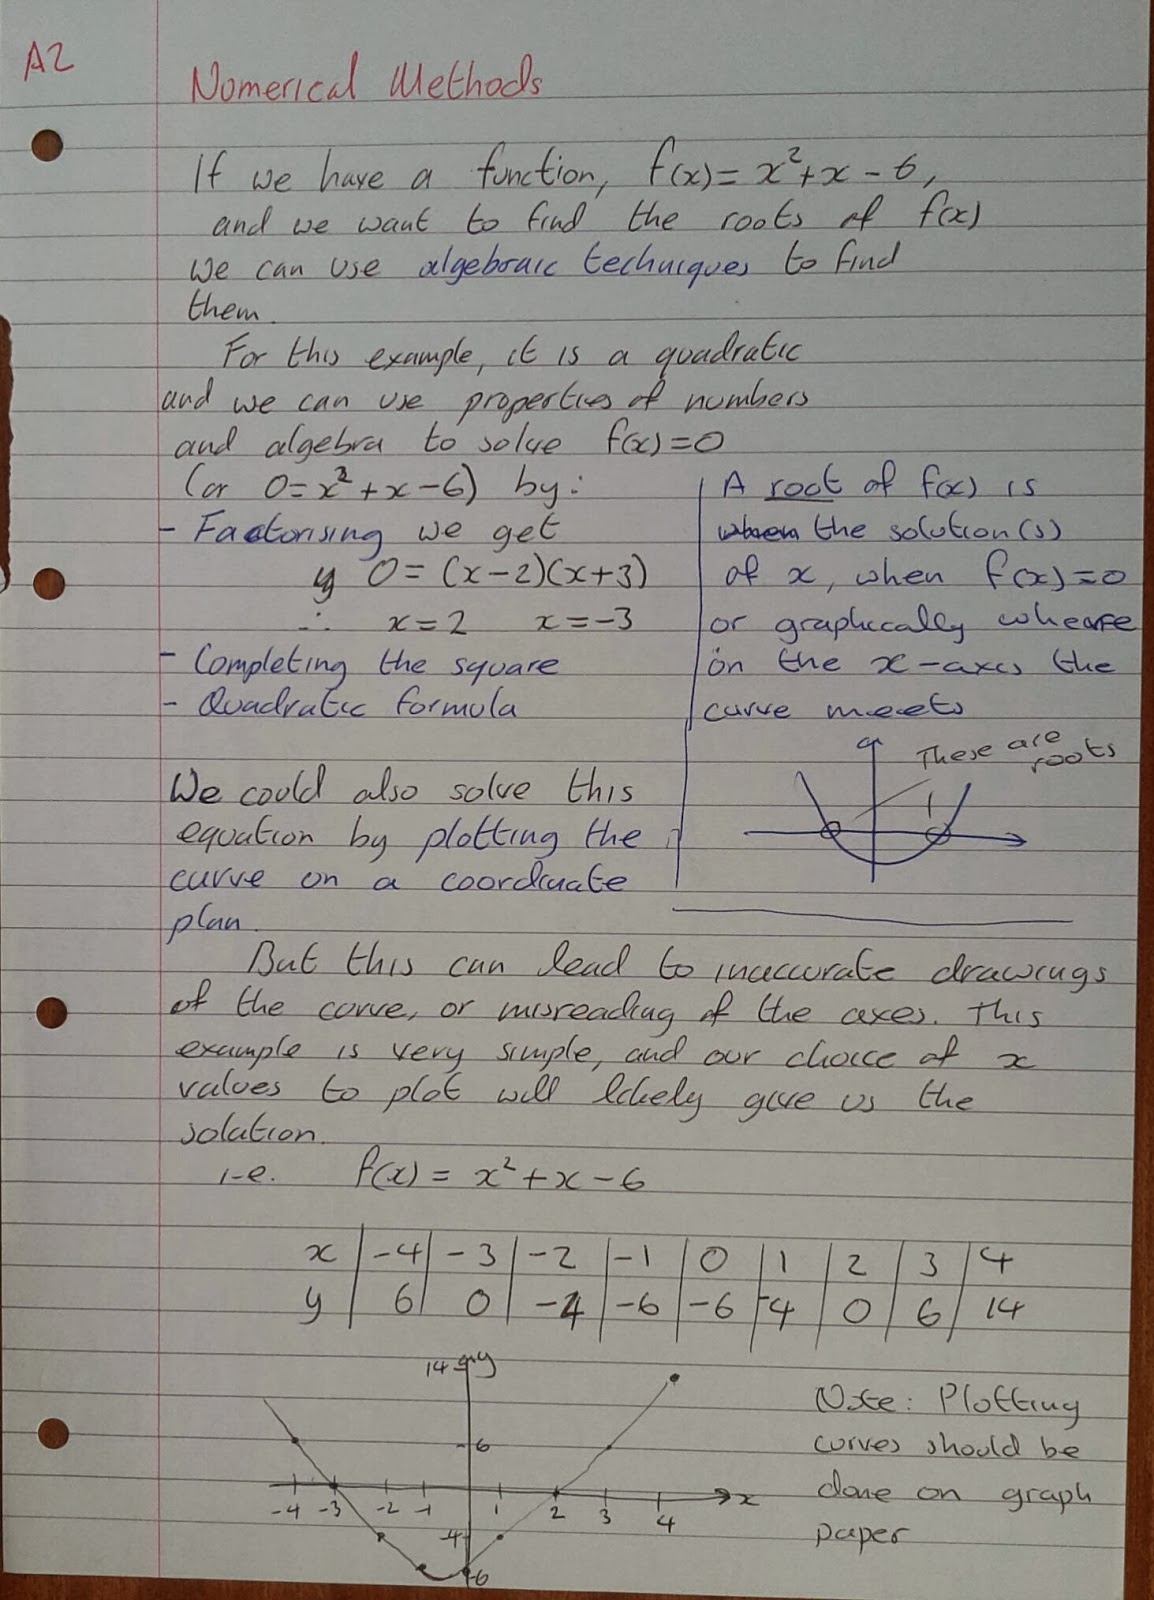 A2
Numerical Methods
If we have a function, f(x) = x² + x - 6,
and we want to find the roots of f(x)
we can use algebraic techniques to find
them.
For this example, it is a quadratic
and we can use properties of numbers
and algebra to solve f(x) = 0
(or 0 = x² + x - 6) by:
- Factorising we get
y 0 = (x-2)(x+3)
∴ x = 2 x = -3
- Completing the square
- Quadratic formula
A root of f(x) is
when the solution(s)
of x, when f(x) = 0
or graphically where
on the x-axis the
curve meets
These are
roots
We could also solve this
equation by plotting the
curve on a coordinate
plan.
But this can lead to inaccurate drawings
of the curve, or misreading of the axes. This
example is very simple, and our choice of x
values to plot will likely give us the
solution.
i-e. f(x) = x² + x - 6
x -4 -3 -2 -1 0 1 2 3 4
y 6 0 -4 -6 -6 -4 0 6 14
14 y
6
-4 -3 -2 -1 1 2 3 4 x
-4
-6
Note: Plotting
curves should be
done on graph
paper